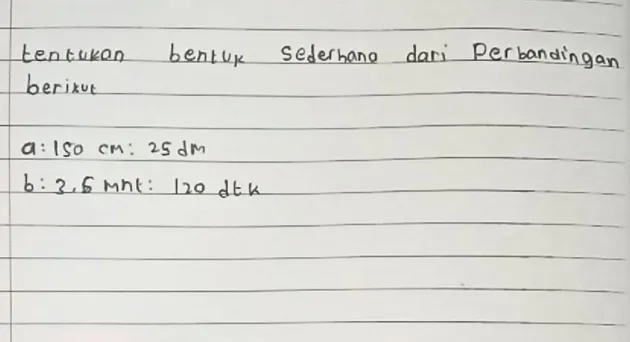 tentukan bentuk sederhana dari Perbandingan
berikut
a: 150 cm: 25 dm
b: 3,6 mnt: 120 dtk